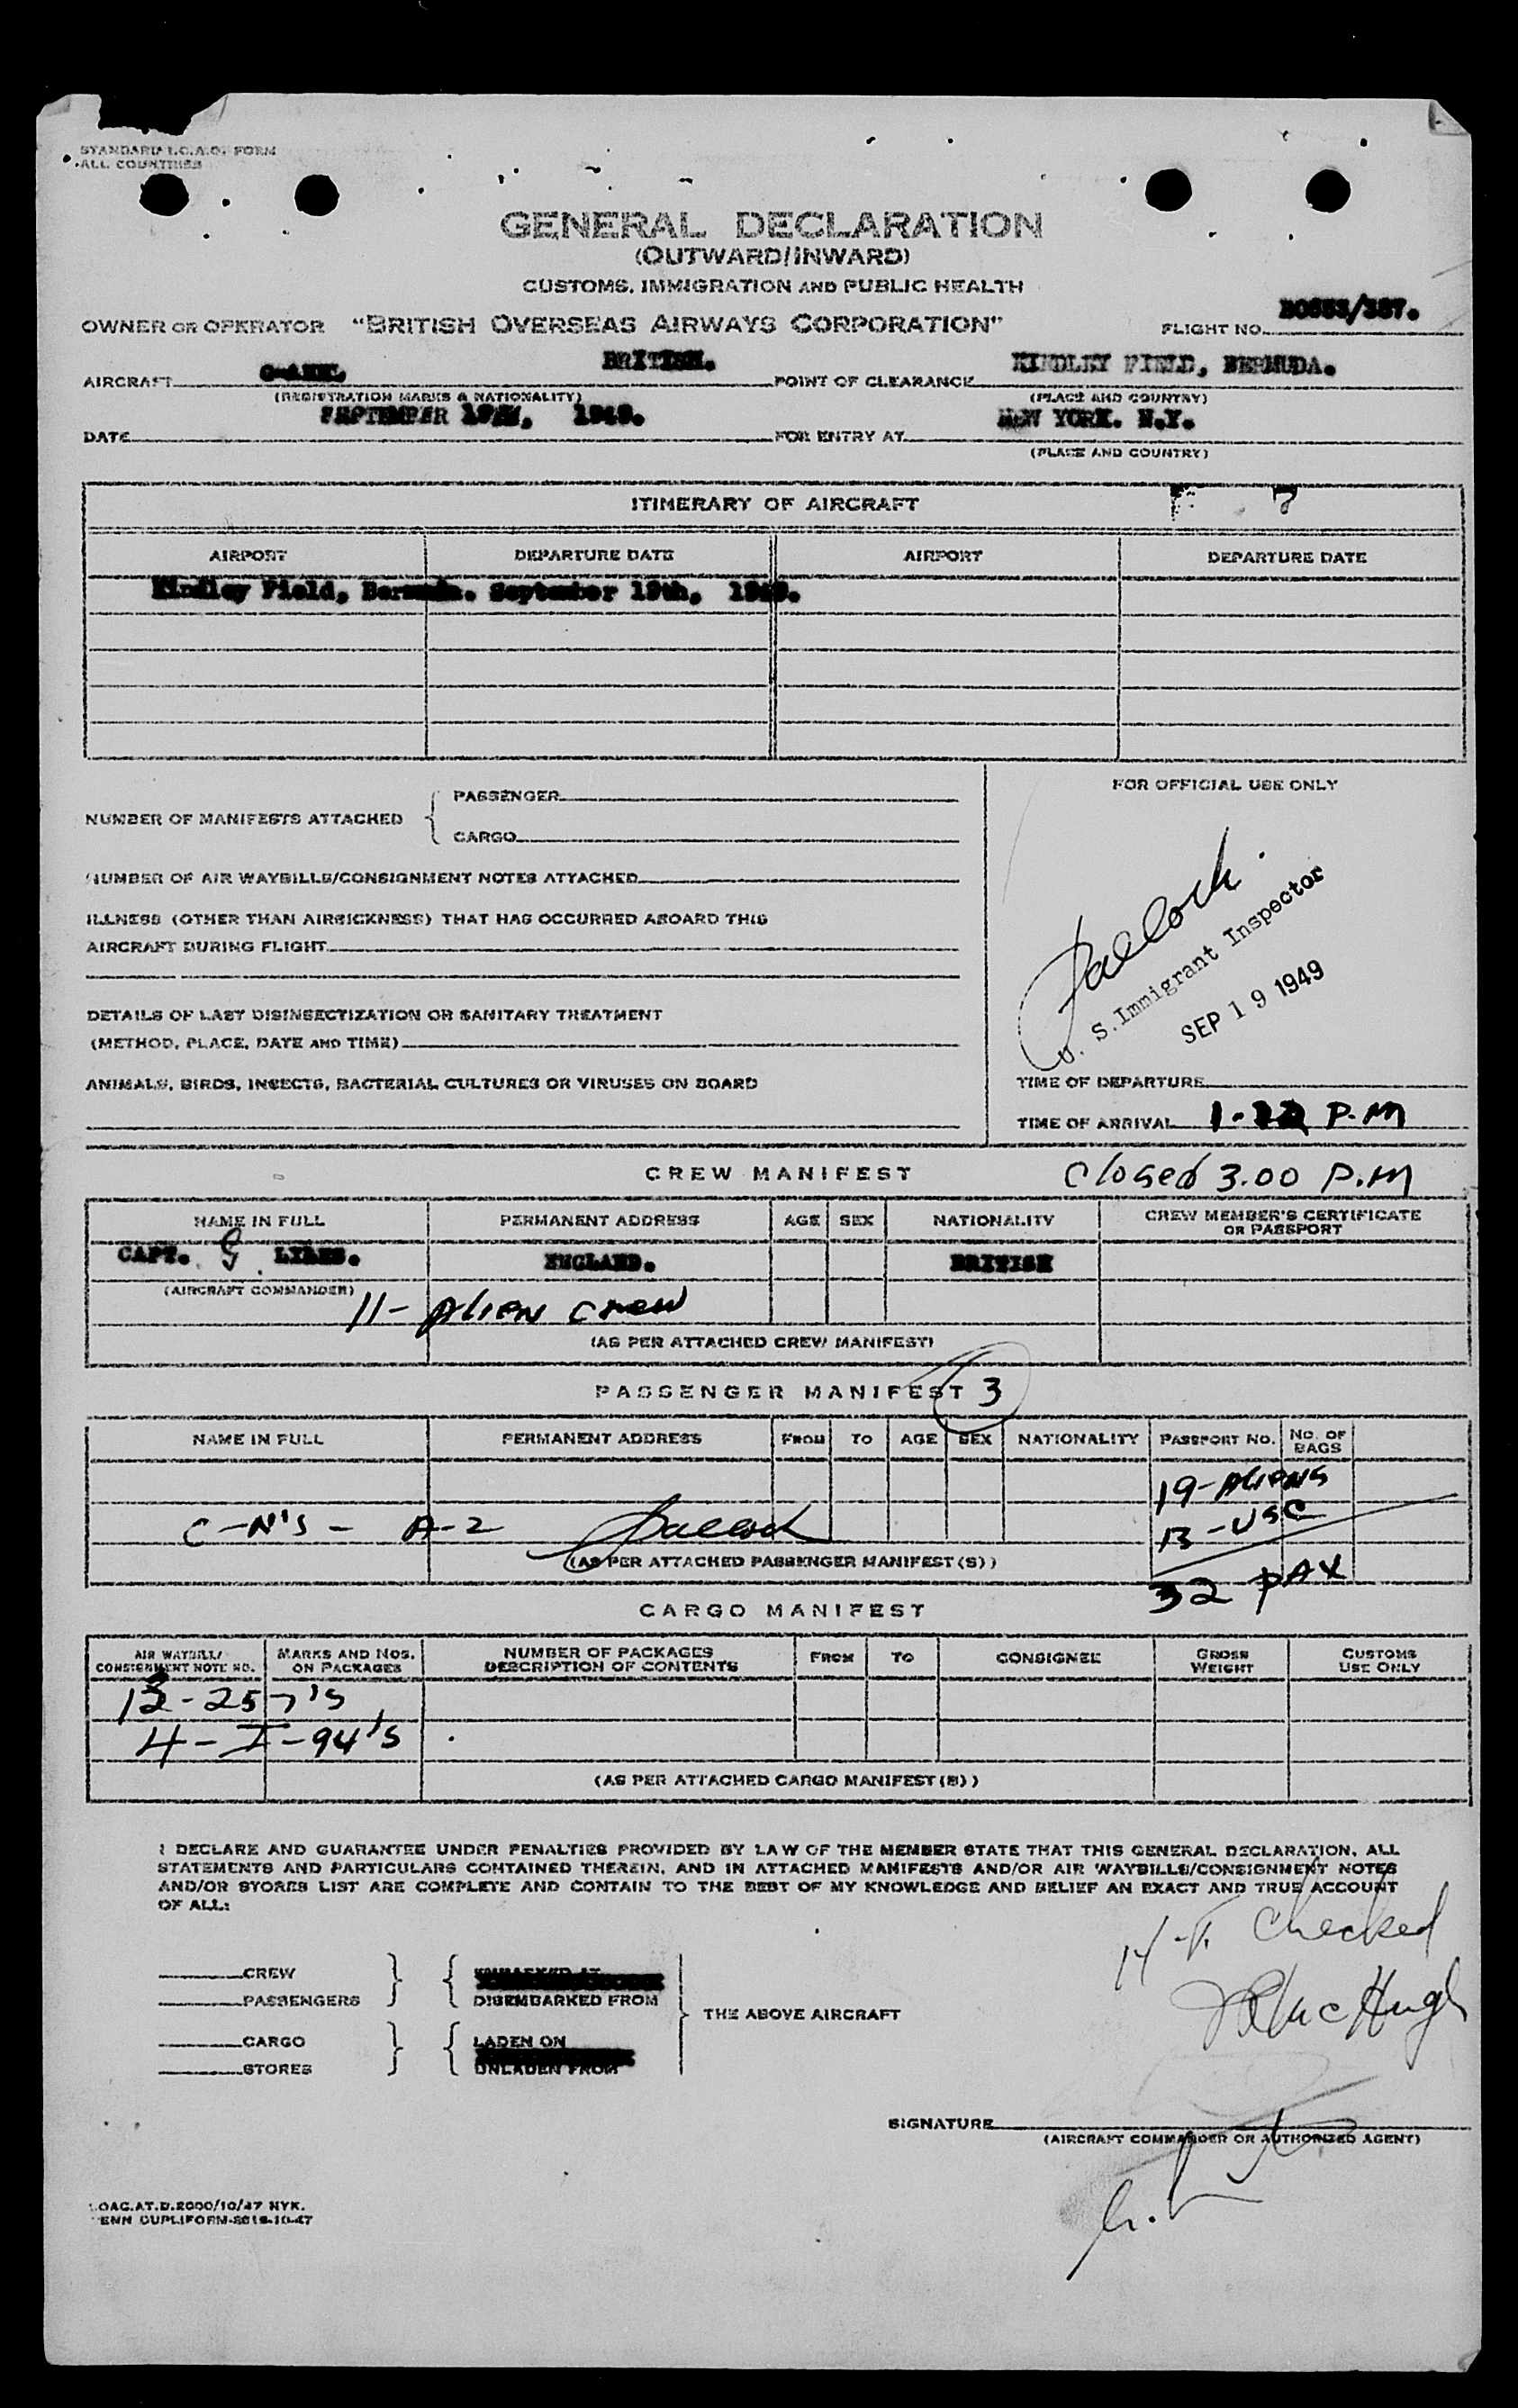 STANDARD I.C.A.O. FORM
ALL COUNTRIES
GENERAL DECLARATION
(OUTWARD/INWARD)
CUSTOMS, IMMIGRATION AND PUBLIC HEALTH
OWNER OR OPERATOR "BRITISH OVERSEAS AIRWAYS CORPORATION" FLIGHT NO.
AIRCRAFT BRITISH. POINT OF CLEARANCE KINDLEY FIELD, BERMUDA.
(REGISTRATION MARKS & NATIONALITY) (PLACE AND COUNTRY)
DATE SEPTEMBER 19th, 1949. FOR ENTRY AT NEW YORK. N.Y.
(PLACE AND COUNTRY)
ITINERARY OF AIRCRAFT
AIRPORT DEPARTURE DATE AIRPORT DEPARTURE DATE
Kindley Field, Bermuda. September 19th, 1949.
FOR OFFICIAL USE ONLY
NUMBER OF MANIFESTS ATTACHED { PASSENGER
CARGO
NUMBER OF AIR WAYBILLS/CONSIGNMENT NOTES ATTACHED
ILLNESS (OTHER THAN AIRSICKNESS) THAT HAS OCCURRED ABOARD THIS
AIRCRAFT DURING FLIGHT
U. S. Immigrant Inspector
SEP 19 1949
DETAILS OF LAST DISINSECTIZATION OR SANITARY TREATMENT
(METHOD, PLACE, DATE AND TIME)
ANIMALS, BIRDS, INSECTS, BACTERIAL CULTURES OR VIRUSES ON BOARD
TIME OF DEPARTURE
TIME OF ARRIVAL P.M
CREW MANIFEST Closed 3.00 P.M
NAME IN FULL PERMANENT ADDRESS AGE SEX NATIONALITY CREW MEMBER'S CERTIFICATE OR PASSPORT
CAPT. G ENGLAND. BRITISH
(AIRCRAFT COMMANDER)
11 - Alien Crew
(AS PER ATTACHED CREW MANIFEST)
PASSENGER MANIFEST 3
NAME IN FULL PERMANENT ADDRESS FROM TO AGE SEX NATIONALITY PASSPORT NO. NO. OF BAGS
19 - Aliens
C - N's - A-2 13 - USC
(AS PER ATTACHED PASSENGER MANIFEST(S))
32 PAX
CARGO MANIFEST
AIR WAYBILL/ CONSIGNMENT NOTE NO. MARKS AND NOS. ON PACKAGES NUMBER OF PACKAGES DESCRIPTION OF CONTENTS FROM TO CONSIGNEE GROSS WEIGHT CUSTOMS USE ONLY
257's
4 - I-94's
(AS PER ATTACHED CARGO MANIFEST(S))
I DECLARE AND GUARANTEE UNDER PENALTIES PROVIDED BY LAW OF THE MEMBER STATE THAT THIS GENERAL DECLARATION, ALL
STATEMENTS AND PARTICULARS CONTAINED THEREIN, AND IN ATTACHED MANIFESTS AND/OR AIR WAYBILLS/CONSIGNMENT NOTES
AND/OR STORES LIST ARE COMPLETE AND CONTAIN TO THE BEST OF MY KNOWLEDGE AND BELIEF AN EXACT AND TRUE ACCOUNT
OF ALL:
Checked
McHugh
CREW
PASSENGERS DISEMBARKED FROM
THE ABOVE AIRCRAFT
CARGO LADEN ON
STORES UNLADEN FROM
SIGNATURE
(AIRCRAFT COMMANDER OR AUTHORIZED AGENT)
OAC.AT.D.2000/10/47 NYK.